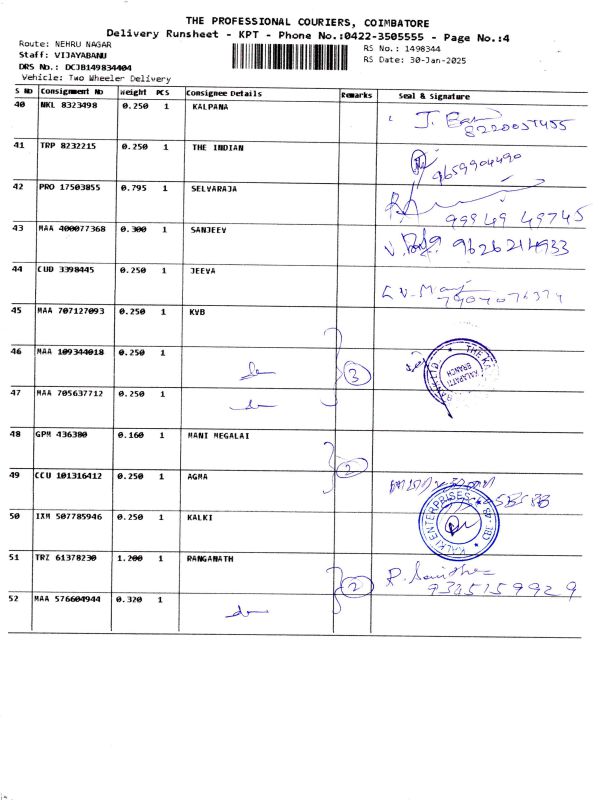 THE PROFESSIONAL COURIERS, COIMBATORE
Delivery Runsheet - KPT - Phone No.:0422-3505555 - Page No.:4
Route: NEHRU NAGAR
RS No.: 1498344
Staff: VIJAYABANU
RS Date: 30-Jan-2025
DRS No.: DCJB149834404
Vehicle: Two Wheeler Delivery
S NO Consignment No Weight PCS Consignee Details Remarks Seal & Signature
40 NKL 8323498 0.250 1 KALPANA
41 TRP 8232215 0.250 1 THE INDIAN
9659904490
42 PRO 17503855 0.795 1 SELVARAJA
99949 49745
43 MAA 400077368 0.300 1 SANJEEV
9626214933
44 CUD 3398445 0.250 1 JEEVA
45 MAA 707127093 0.250 1 KVB
46 MAA 109344018 0.250 1
3
47 MAA 705637712 0.250 1
48 GPM 436380 0.160 1 MANI MEGALAI
2
49 CCU 101316412 0.250 1 AGMA
50 IXM 507785946 0.250 1 KALKI
KALKI ENTERPRISES
51 TRZ 61378230 1.200 1 RANGANATH
2
9345159929
52 MAA 576604944 0.320 1